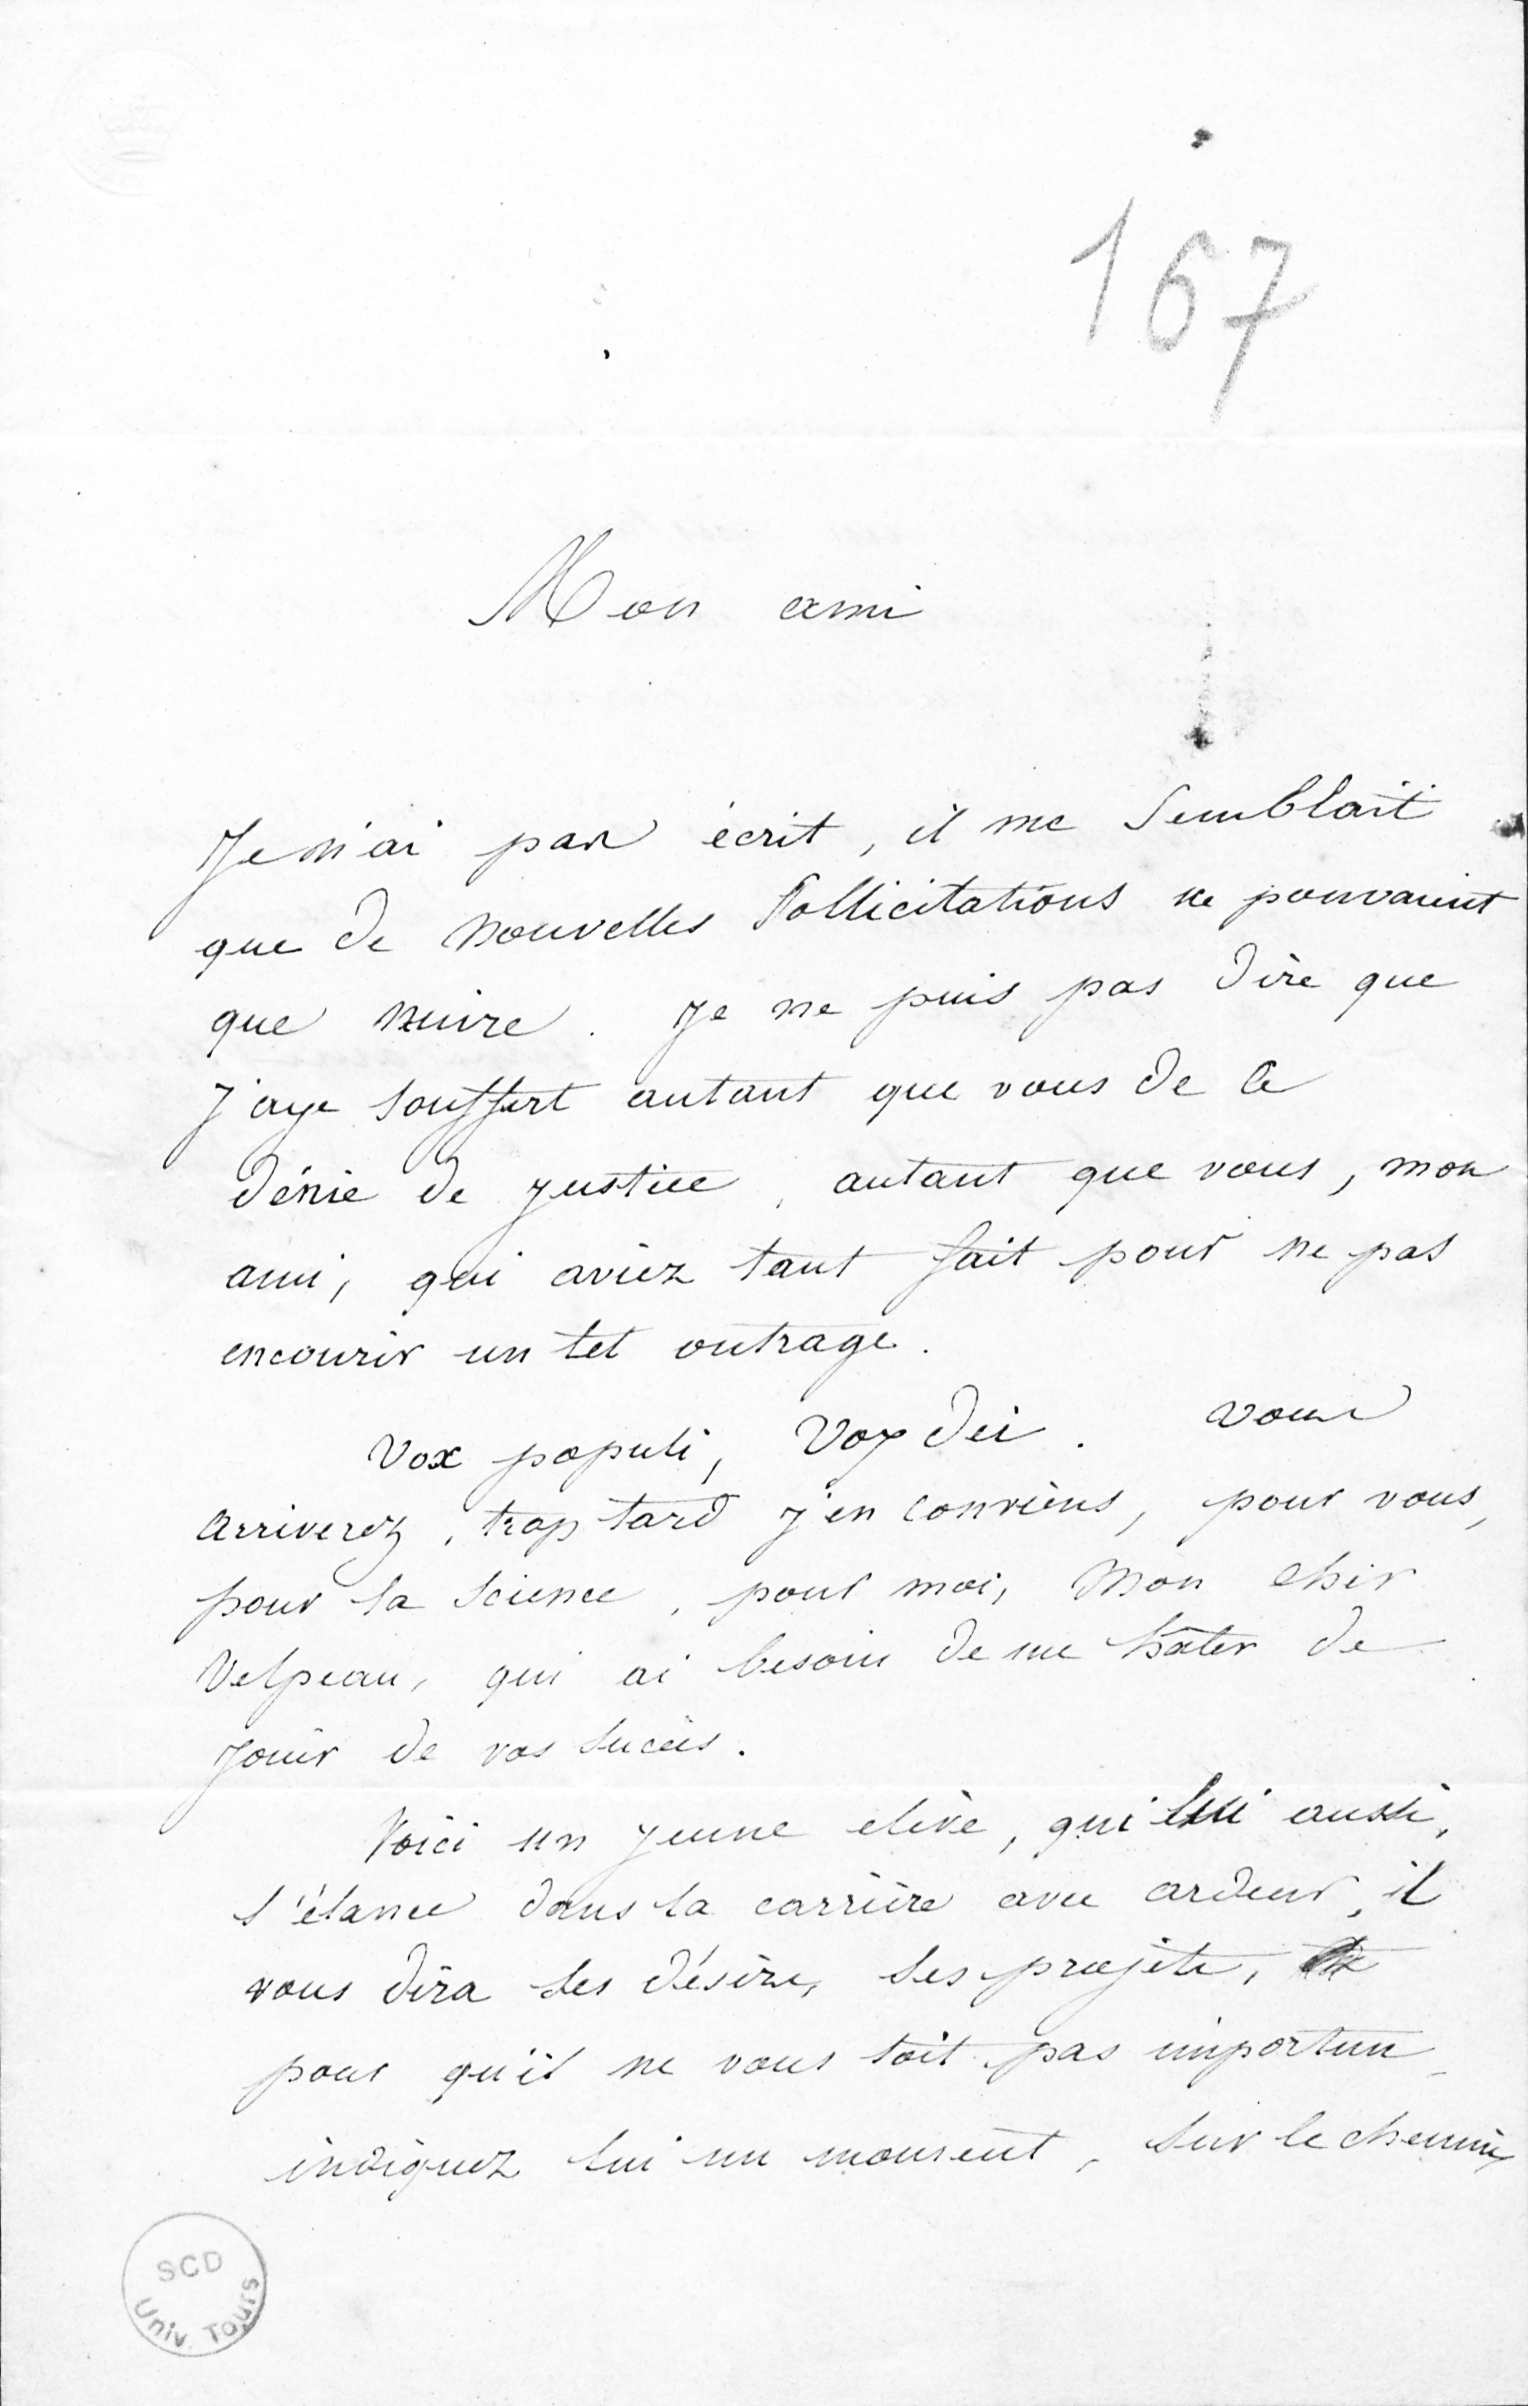 167
Mon ami
Je n'ai pas écrit, il me semblait
que de nouvelles sollicitations ne pouvaient
que nuire. Je ne puis pas dire que
j'aye souffert autant que vous de ce
dénie de justice, autant que vous, mon
ami, qui aviez tant fait pour ne pas
encourir un tel outrage.
Vox populi, Vox dei. vous
arriverez, trop tard j'en conviens, pour vous,
pour la science, pour moi, mon cher
Velpeau, qui ai besoin de me hâter de
jouir de vos succès.
Voici un jeune elève, qui lui aussi,
s'élance dans la carrière avec ardeur, il
vous dira ses désirs, ses projets,
pour qu'il ne vous soit pas importun
indiquez lui un moment, sur le chemin
SCD
Univ. Tours